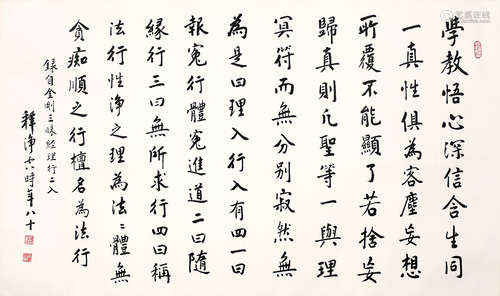 學教悟心深信含生同
一真性俱為客塵妄想
所覆不能顯了若捨妄
歸真則凡聖等一與理
冥符而無分別寂然無
為是曰理入行入有四一曰
報冤行體冤進道二曰隨
緣行三曰無所求行四曰稱
法行性淨之理為法〻體無
貪痴順之行檀名為法行
錄自金剛三昧經理行二入
釋淨空時年八十